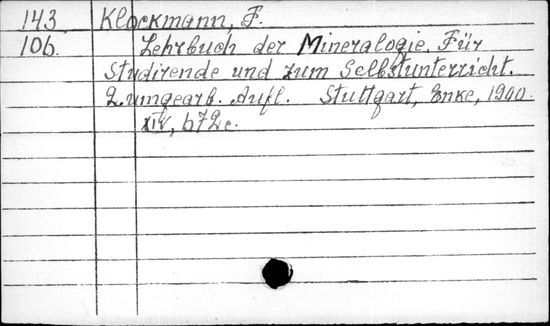 143. Klockmann, F.
106. Lehrbuch der Mineralogie. Für
Studirende und zum Selbstunterricht.
2. umgearb. Aufl. Stuttgart, Enke, 1900.
XIV, 672 c.